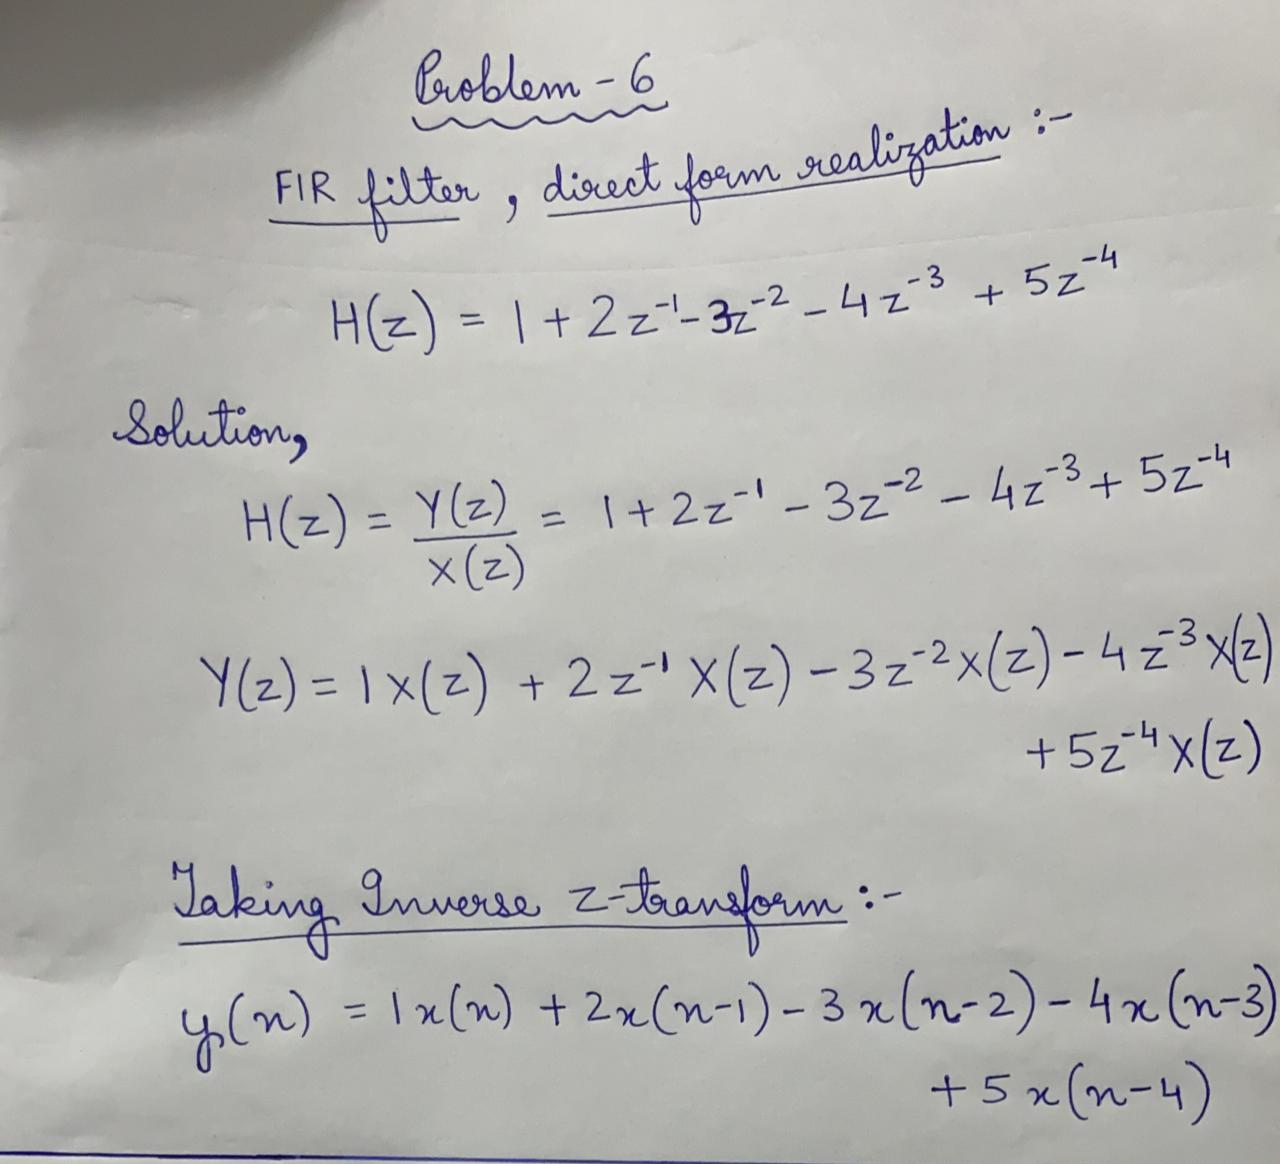 Problem - 6
FIR filter, direct form realization :-
H(z) = 1 + 2z⁻¹ - 3z⁻² - 4z⁻³ + 5z⁻⁴
Solution,
H(z) = Y(z)/X(z) = 1 + 2z⁻¹ - 3z⁻² - 4z⁻³ + 5z⁻⁴
Y(z) = 1X(z) + 2z⁻¹X(z) - 3z⁻²X(z) - 4z⁻³X(z)
+ 5z⁻⁴X(z)
Taking Inverse z-transform :-
y(n) = 1x(n) + 2x(n-1) - 3x(n-2) - 4x(n-3)
+ 5x(n-4)